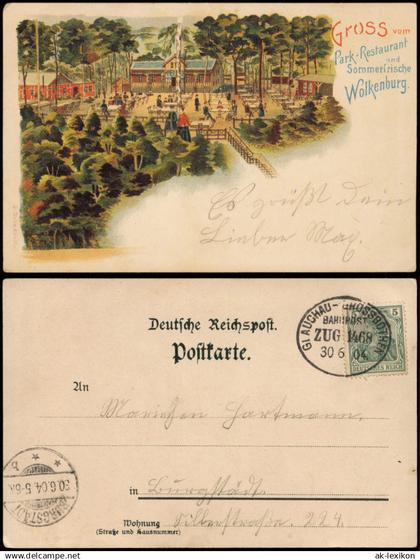 Gruss vom
Park-Restaurant
und
Sommerfrische
Wolkenburg.
Es grüßt Dein
Lieber Max.
Deutsche Reichspost.
Postkarte.
GLAUCHAU-GROSSBOTHEN
BAHNPOST
ZUG 1468
30 6 04
5
DEUTSCHES REICH
An
Mariechen Hartmann.
BURGSTÄDT
30.6.04.5-6N.
* b *
in Burgstädt.
Wohnung Silberstraße. 224.
(Straße und Hausnummer)
ak-lexikon
© ak-lexikon.de